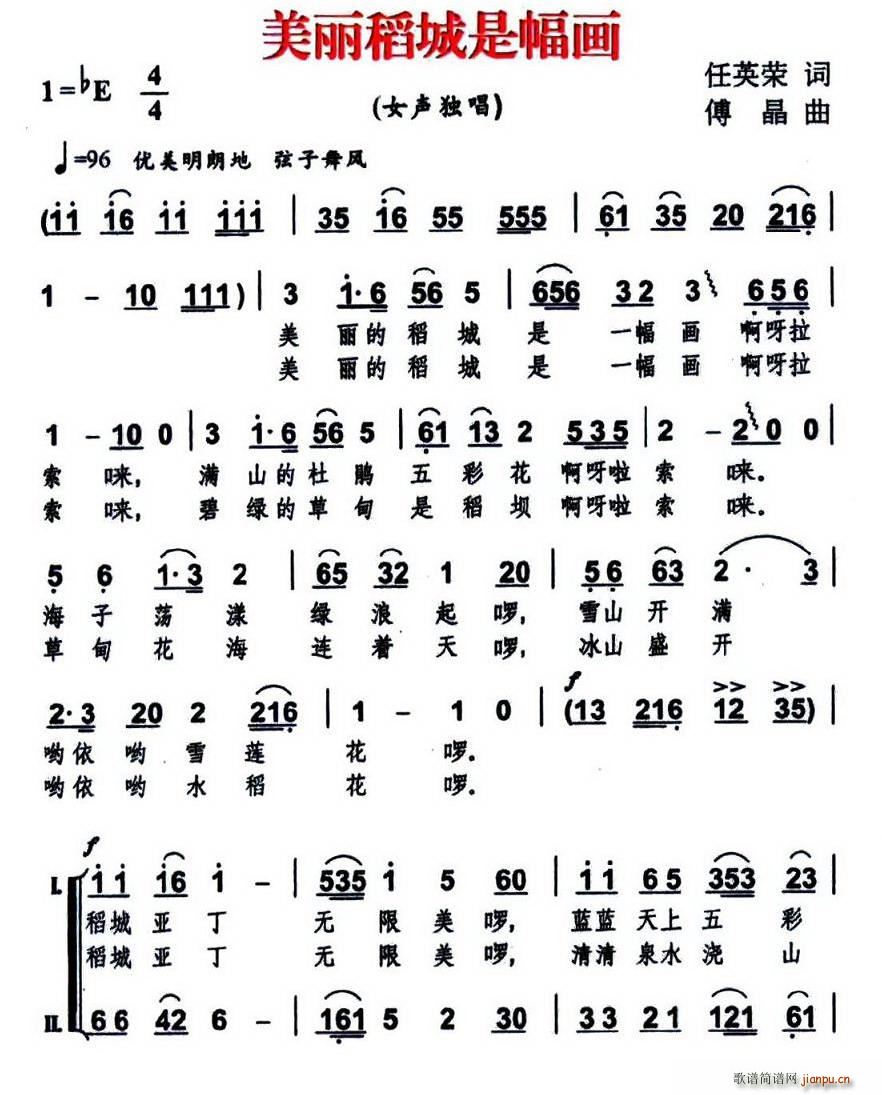 美丽稻城是幅画
1=♭E 4/4
(女声独唱)
任英荣 词
傅 晶 曲
♩=96 优美明朗地 弦子舞风
(i̇i̇ i̇6 i̇i̇ i̇i̇i̇ | 35 i̇6 55 555 | 6̣1 35 20 216̣ |
1 – 10 111) | 3 i̇·6 56 5 | 656 32 3 6̣5̣6̣ |
美 丽的 稻 城 是 一幅 画 啊呀拉
美 丽的 稻 城 是 一幅 画 啊呀拉
1 – 10 0 | 3 i̇·6 56 5 | 6̣1 13 2 535 | 2 – 20 0 |
索 咪, 满 山的 杜 鹃 五 彩 花 啊呀啦 索 咪.
索 咪, 碧 绿的 草 甸 是 稻 坝 啊呀啦 索 咪.
5̣ 6̣ 1·3 2 | 65 32 1 20 | 5̣6̣ 63 2· 3 |
海 子 荡 漾 绿 浪 起 啰, 雪山 开 满
草 甸 花 海 连 着 天 啰, 冰山 盛 开
f
2·3 20 2 216̣ | 1 – 1 0 | (13 216̣ 12 35) |
>> >>
哟依 哟 雪 莲 花 啰.
哟依 哟 水 稻 花 啰.
f
I. i̇ i̇ i̇6 i̇ – | 535 i̇ 5 60 | i̇ i̇ 6 5 353 23 |
稻城 亚 丁 无 限 美 啰, 蓝蓝 天上 五 彩
稻城 亚 丁 无 限 美 啰, 清清 泉水 浇 山
II. 6 6 42 6 – | 16̣1 5 2 30 | 3 3 2 1 121 6̣1 |
歌谱简谱网 jianpu.cn